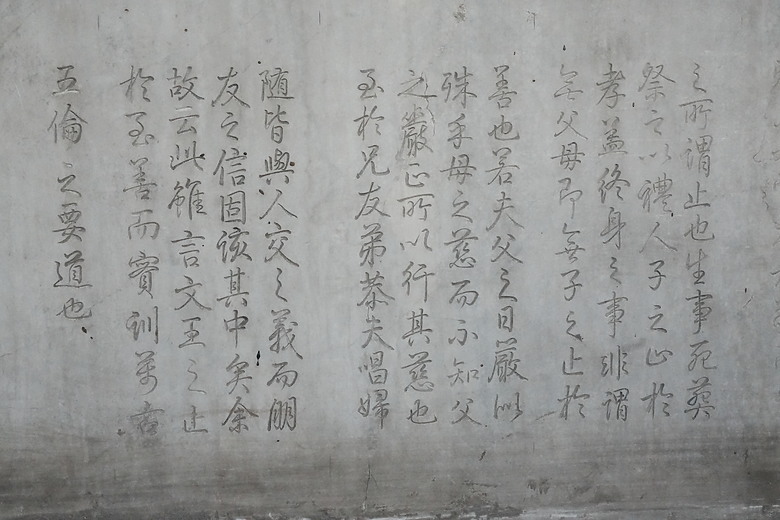 之所謂止也生事死葬
祭之以禮人子之止於
孝蓋終身之事非謂
無父母即無子之止於
善也若夫父之曰嚴似
殊乎母之慈而不知父
之嚴正所以行其慈也
至於兄友弟恭夫唱婦
隨皆與人交之義而朋
友之信固該其中矣余
故云此雖言文王之止
於至善而實訓萬
五倫之要道也